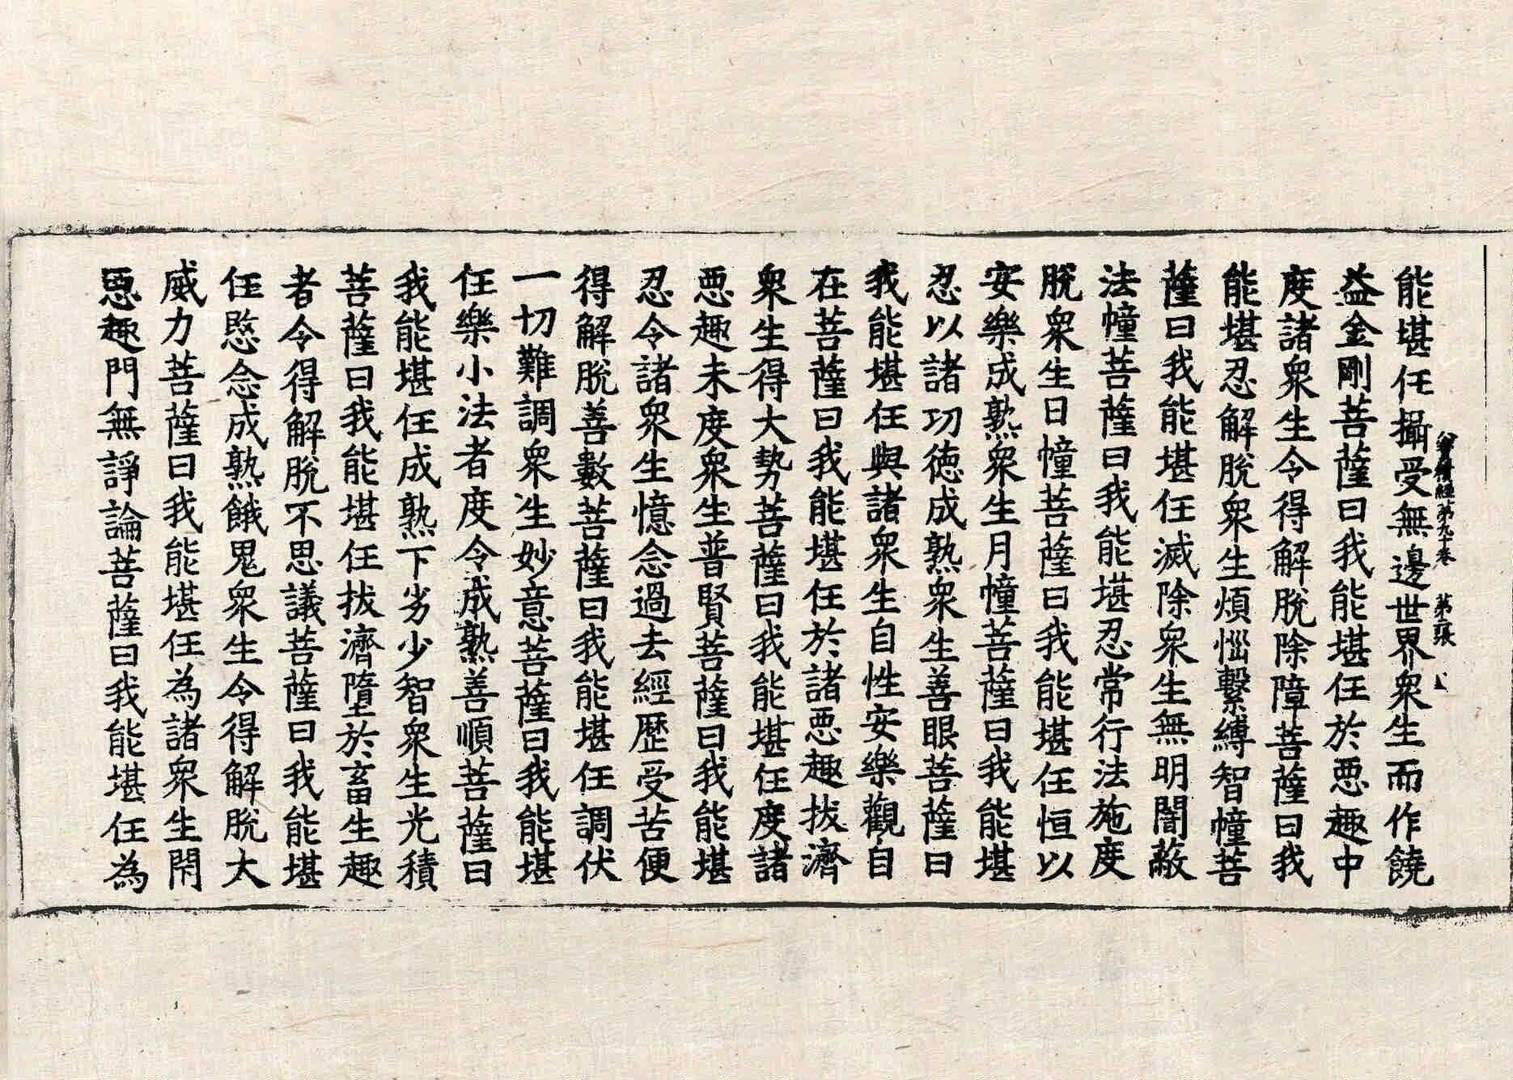 寶積經第九十卷 第
能堪任攝受無邊世界衆生而作饒
益金剛菩薩曰我能堪任於悪趣中
度諸衆生令得解脫除障菩薩曰我
能堪忍解脫衆生煩惱繫縛智幢菩
薩曰我能堪任滅除衆生無明闇蔽
法幢菩薩曰我能堪忍常行法施度
脫衆生日幢菩薩曰我能堪任恒以
安樂成熟衆生月幢菩薩曰我能堪
忍以諸功德成熟衆生善眼菩薩曰
我能堪任與諸衆生自性安樂觀自
在菩薩曰我能堪任於諸悪趣拔濟
衆生得大勢菩薩曰我能堪任度諸
悪趣未度衆生普賢菩薩曰我能堪
忍令諸衆生憶念過去經歷受苦便
得解脫善數菩薩曰我能堪任調伏
一切難調衆生妙意菩薩曰我能堪
任樂小法者度令成熟善順菩薩曰
我能堪任成熟下劣少智衆生光積
菩薩曰我能堪任拔濟墮於畜生趣
者令得解脫不思議菩薩曰我能堪
任愍念成熟餓鬼衆生令得解脫大
威力菩薩曰我能堪任為諸衆生閇
悪趣門無諍論菩薩曰我能堪任為